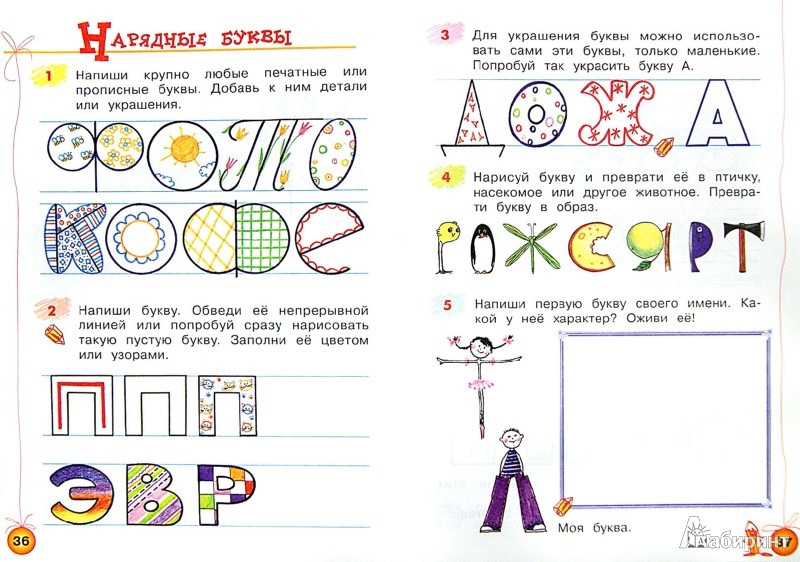 НАРЯДНЫЕ БУКВЫ
1 Напиши крупно любые печатные или
прописные буквы. Добавь к ним детали
или украшения.
ФОТО
КОФЕ
2 Напиши букву. Обведи её непрерывной
линией или попробуй сразу нарисовать
такую пустую букву. Заполни её цветом
или узорами.
П П П
Э В Р
36
3 Для украшения буквы можно использо-
вать сами эти буквы, только маленькие.
Попробуй так украсить букву А.
Д О Ж А
4 Нарисуй букву и преврати её в птичку,
насекомое или другое животное. Преврати-
ти букву в образ.
Г О Ж С Я Р Т
5 Напиши первую букву своего имени. Ка-
кой у неё характер? Оживи её!
Моя буква.
Лабиринт
37